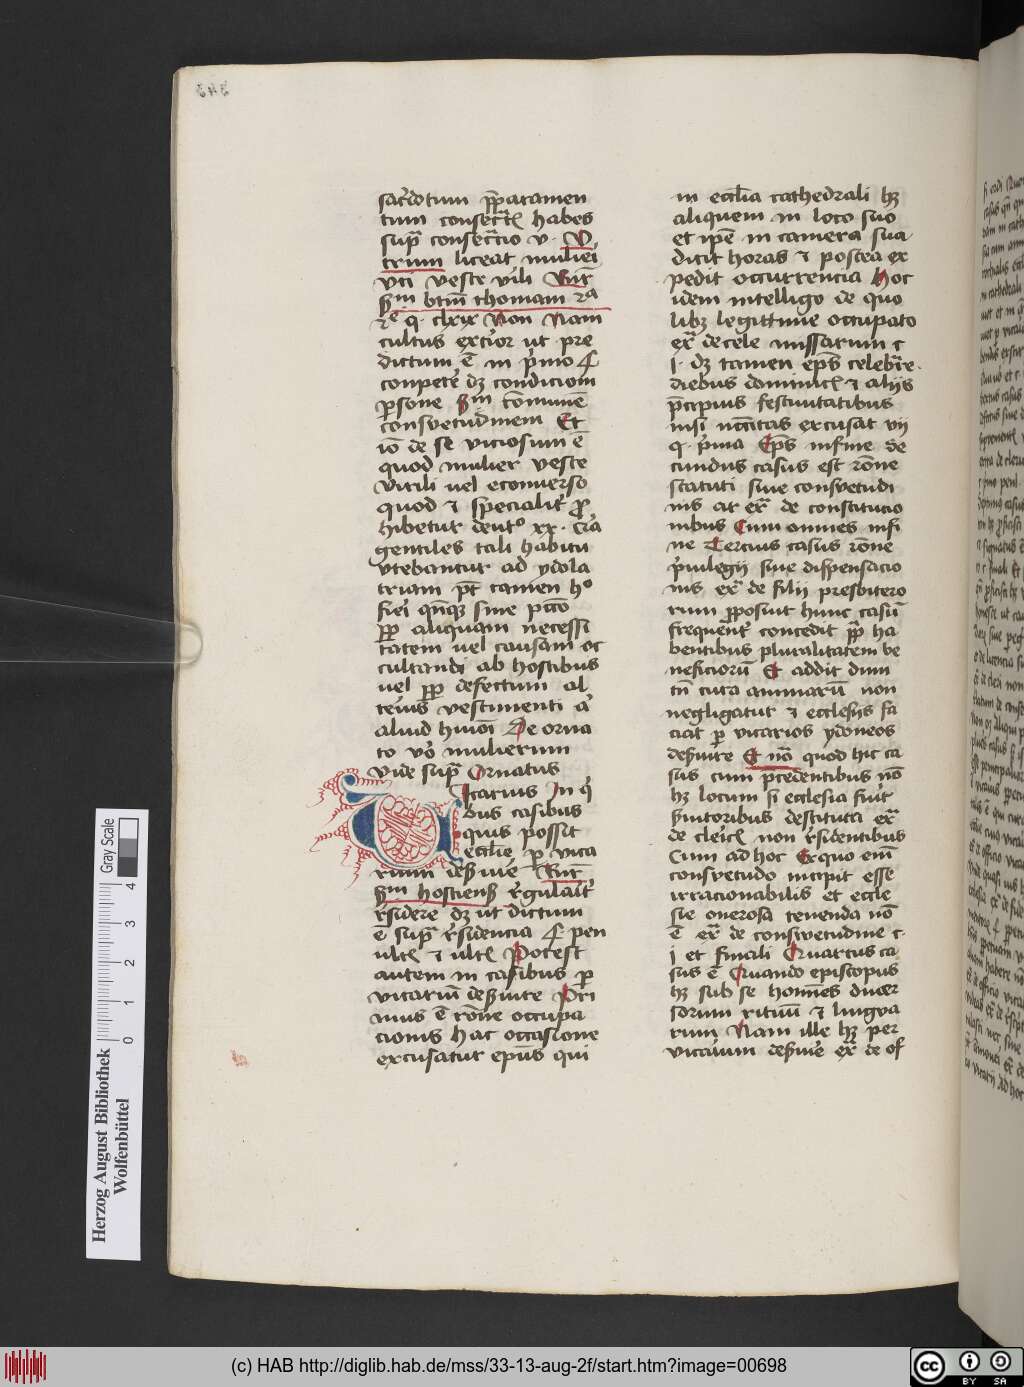 sacerdotum p̄paramen
tum consecr̄t̄ habes
supͣ consecr̄cio v· V
trum liceat muliei̾
vti veste v̾ili Rn̄r
sm̄ btm̄ thomam 2ª
2e q· clxix Non Nam
cultus extior ut pre
dictum ē in p̾mo
conpetē dz condicioni
psone sm̄ cōmunē
consvetudinem Et
iō de se viciosum ē
quod mulier veste
virili uel econuerso
quod ⁊ specialit̾ pͦ
hibetur deutͦ xx· Cīa
gentiles tali habitu
vtebantur ad ydola
triam pt̄ tamen hͦ
fiei̾ qn̄qz sine pctō
pp̄ aliquam necessi
tatem uel causam oc
cultandi ab hostibus
uel pp̄ defectum al
terius vestimenti
aliud hmōi De orna
to vͦo mulierum
vide supͣ Ornatus
Vicarius In q̾
bus casibus
quis possit
eccl̄ie p vica
rium des̾uie̾ Rn̄r
sm̄ hostiens̄ r̾gulait̾
r̾sidere dz ut dictum
ē supͣ r̾sidencia pen
ult̄ ⁊ ult̄ Potest
autem in casibus p
vicariū des̾uire Pri
mus ē rōne occupa
cionis hac occasione
excusatur epūs qui
in eccl̄ia cathedrali hz
aliquem in loco suo
et ipē in camera sua
dicit horas ⁊ postea ex
pedit occurrencia Hoc
idem intelligo de quo
libz legittime occupato
ex̄ de cele missarum c
j· dz tamen ep̄s celebr̄re
diebus dominic̄ ⁊ aliis
p̄cipuis festiuitatibus
nisi nccītas excusat vij
q· p̾ma Ep̄s in fine Se
cundus casus est rōne
statuti siue consvetudi
nis ar ex̄ de constitucio
nibus Cum omnes in fi
ne Tercius casus rōne
p̾uilegij siue dispensacio
nis ex̄ de filii presbitero
rum pposuit hunc casū
frequent̾ concedit pp̄ ha
bentibus pluralitatem be
neficiorū Et addit dum
tn̄ cura animarū non
negligatur ⁊ ecclesiis fa
ciat p vicarios ydoneos
des̾uire Et nō quod hic ca
sus cum p̄cedentibus nō
hz locum si ecclesia fu̾it
s̾uitoribus destituta ex̄
de clei̾c̄ non r̾sidentibus
Cum ad hoc Ex quo eni̅
consvetudo incipit esse
irracionabilis et eccle
sie onerosa tenenda nō
ē ex̄ de consvetudine c
j et finali Quartus ca
sus ē Quando episcopus
hz sub se homīes diuer
sorum rituū ⁊ lingva
rum Nam ille hz per
vicarium des̾uie̾ ex̄ de of
Herzog August Bibliothek
Wolfenbüttel
Gray Scale
0 1 2 3 4
(c) HAB http://diglib.hab.de/mss/33-13-aug-2f/start.htm?image=00698
cc BY SA